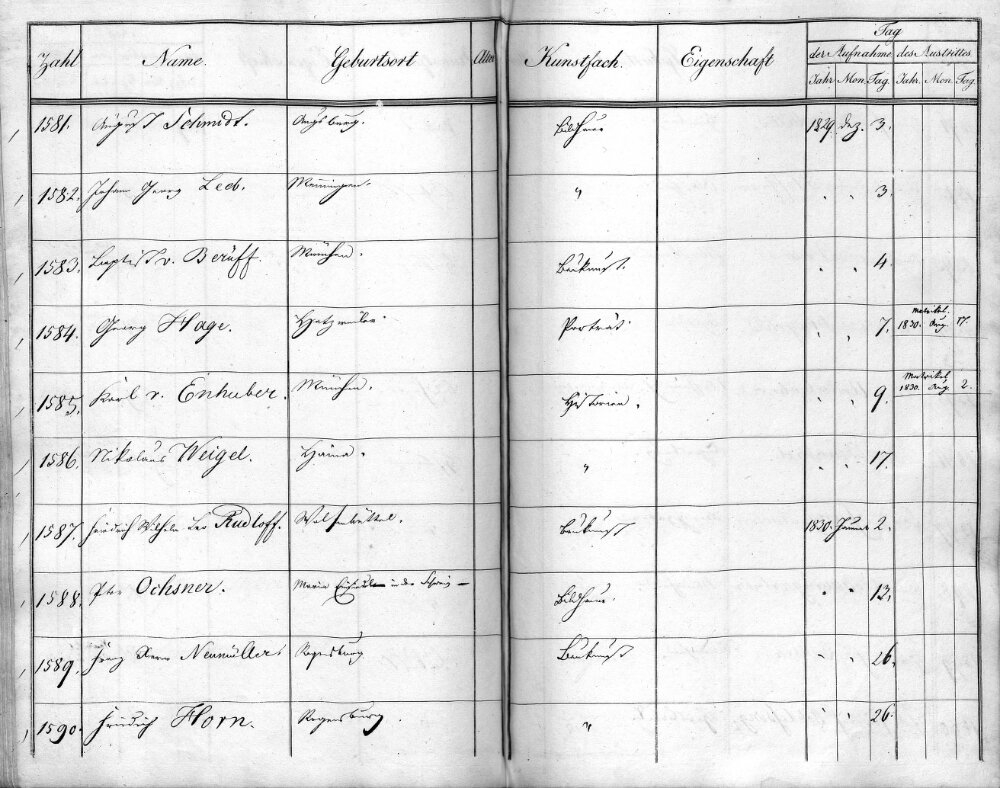 Tag
Zahl Name. Geburtsort Alter Kunstfach. Eigenschaft der Aufnahme des Austrittes
Jahr Mon. Tag. Jahr. Mon. Tag.
1581. August Schmidt. Augsburg. Bildhauer 1829. Dez. 3.
1582. Johann Georg Leeb. Memmingen. " " " 3.
1583. Baptist v. Berüff. München. Baukunst. " " 4.
Matrikel.
1584. Georg Hage. Porträt " " 7. 1830. Aug. 17.
Matrikel
1585. Karl v. Enhuber. München. Historien. " " 9. 1830. Aug. 2.
1586. Nikolaus Weigel. " " " 17.
1587. Friedrich Wilhelm Rudloff. Wolfenbüttel. Baukunst 1830. Januar 2.
1588. Peter Ochsner. Maria Einsiedeln in der Schweiz – Bildhauer. " " 13.
1589. Franz Neumüller Regensburg Baukunst " " 26.
1590. Friedrich Horn. Regensburg. " " " 26.